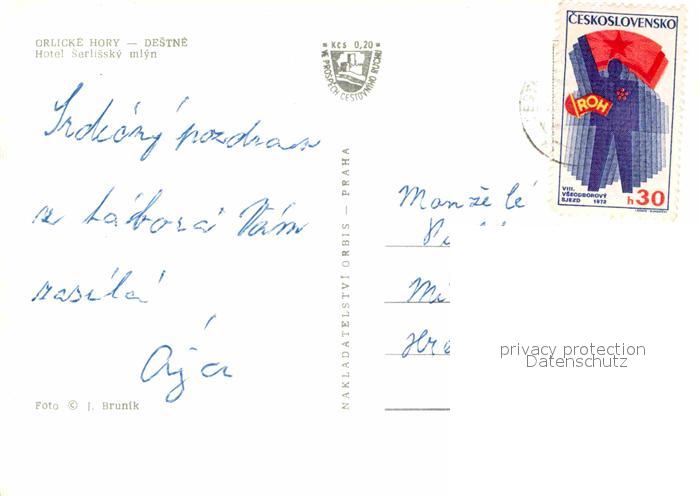 ORLICKÉ HORY — DEŠTNÉ
Hotel Šerlišský mlýn
Kčs 0,20
VE PROSPĚCH CESTOVNÍHO RUCHU
ČESKOSLOVENSKO
ROH
VIII.
VŠEODBOROVÝ
SJEZD 1972
h 30
Srdečný pozdrav
z tábora Vám
zasílá
Ája
NAKLADATELSTVÍ ORBIS — PRAHA
Manželé
Foto © J. Bruník
privacy protection
Datenschutz